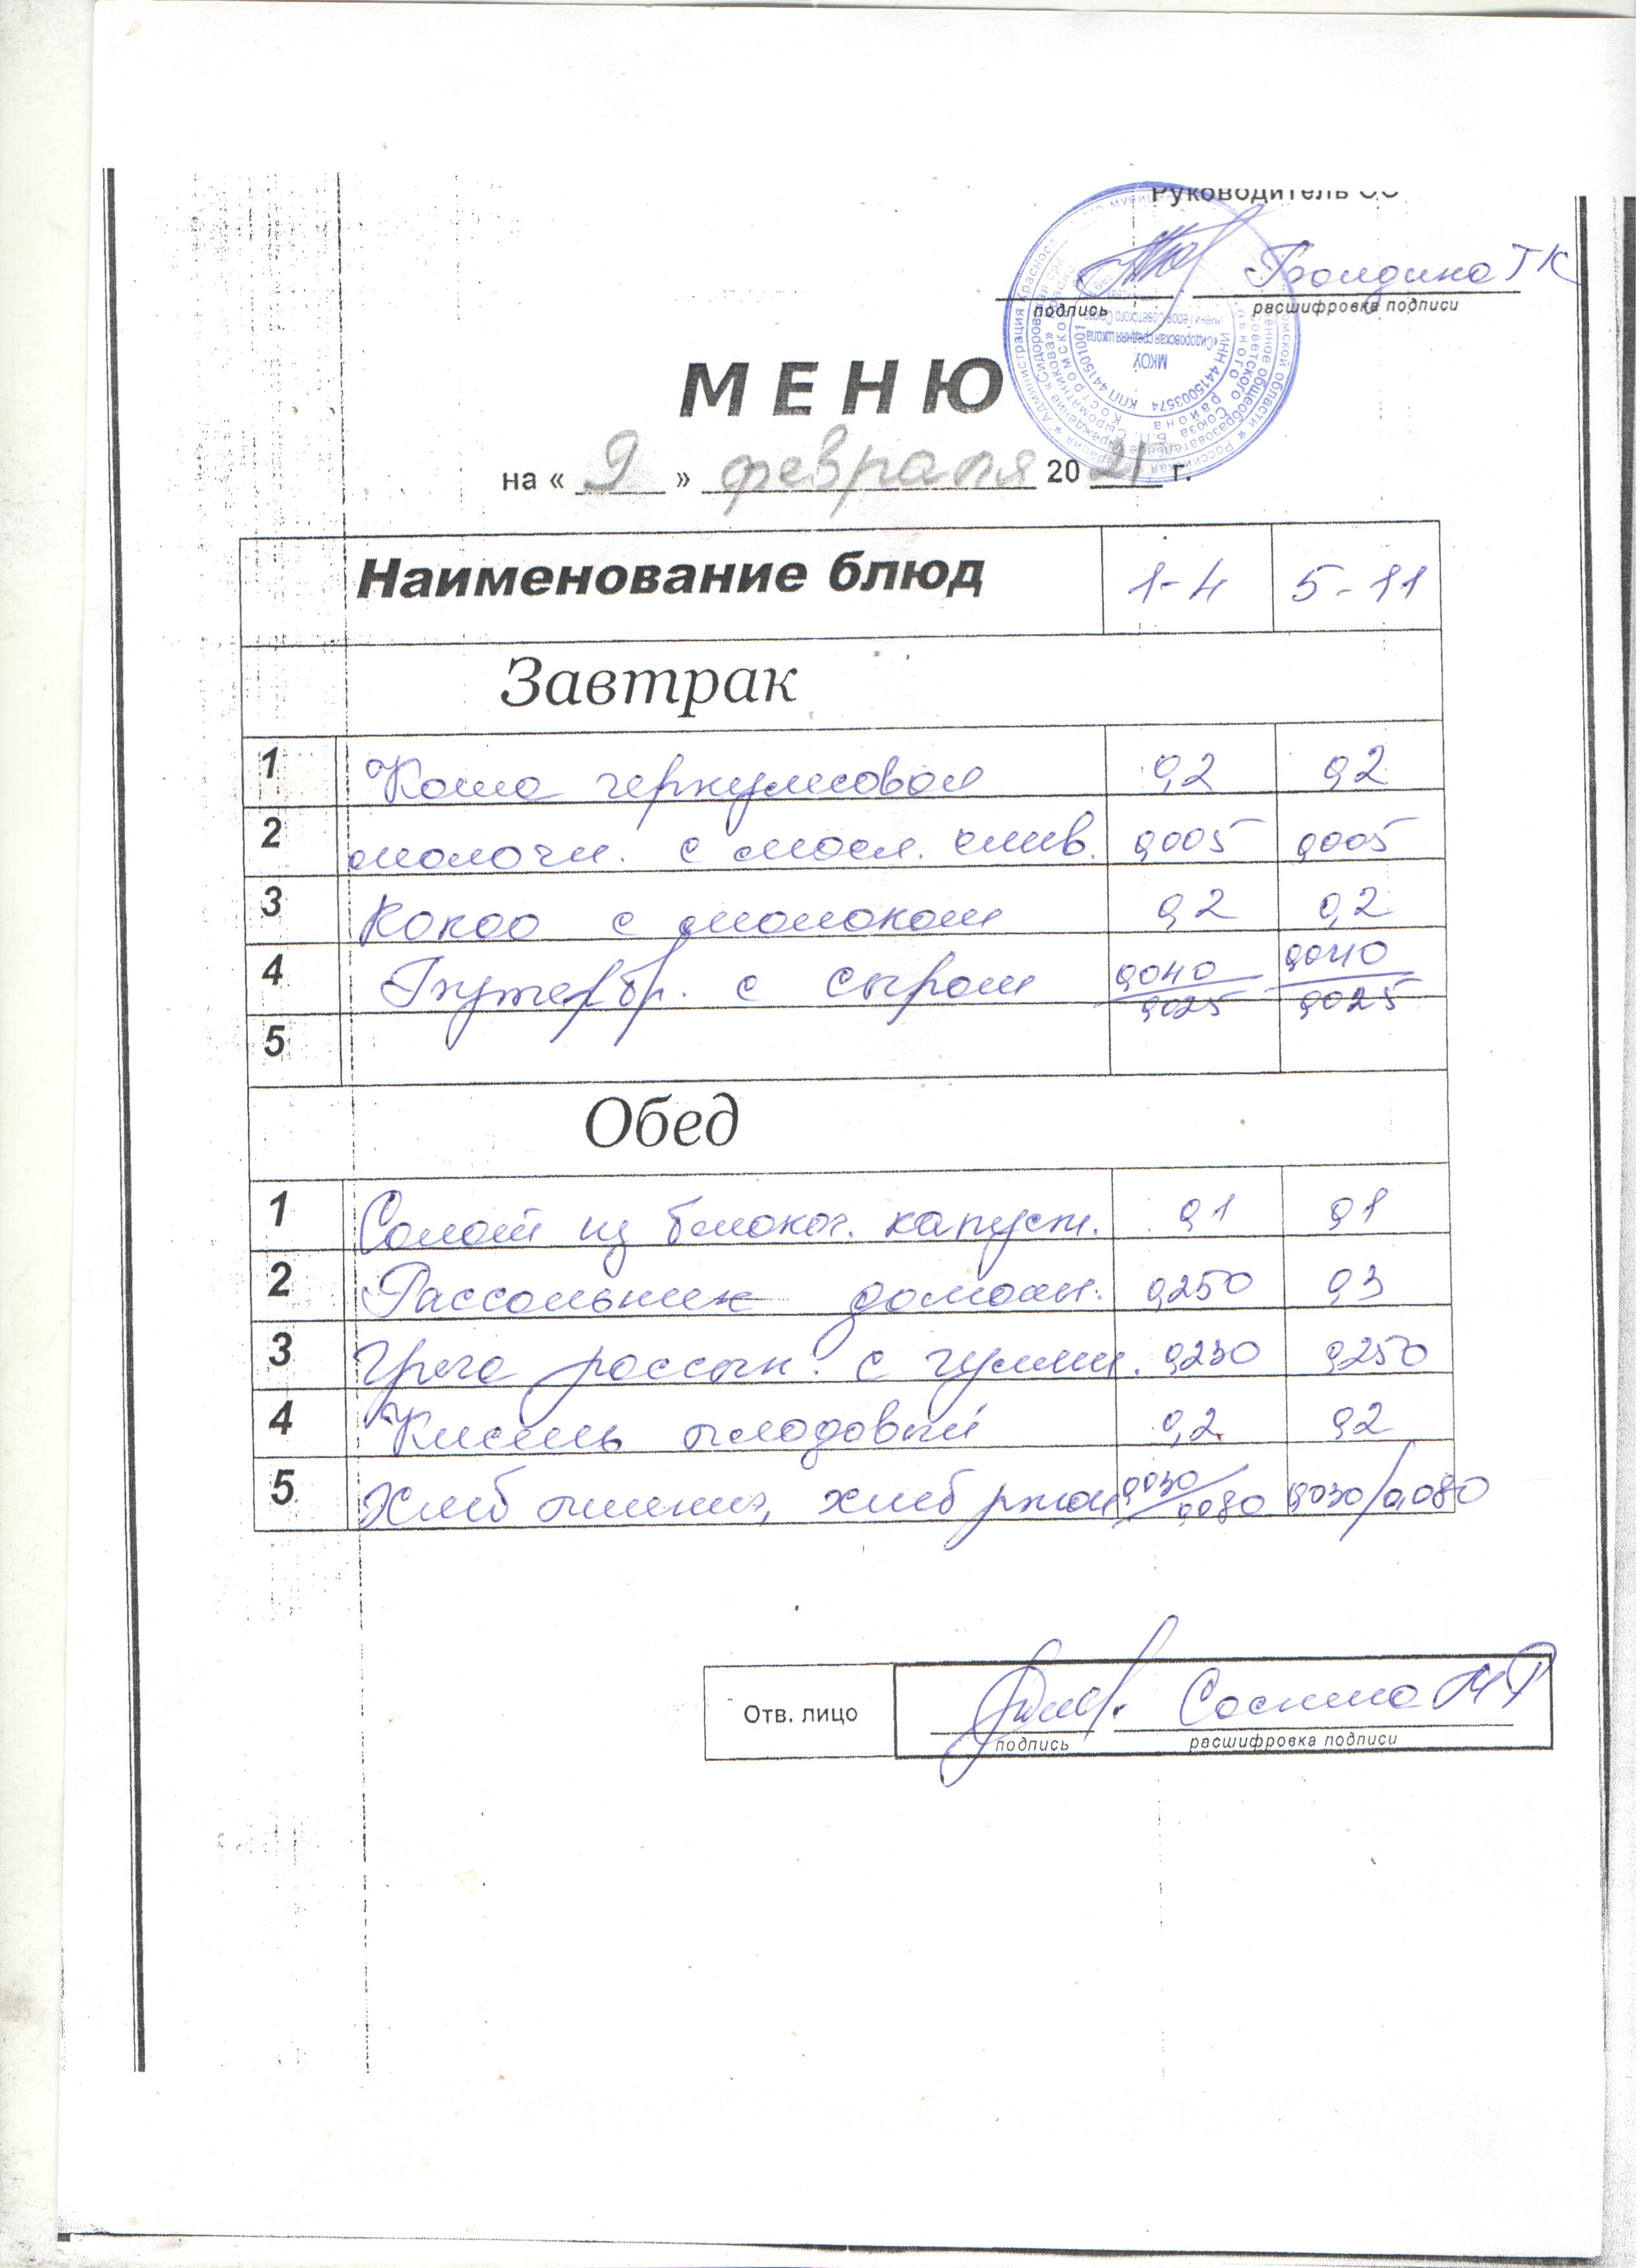 Руководитель ОО
Громдина ТК
подпись расшифровка подписи
МКОУ
«Сидоровская средняя школа
имени Героя Советского Союза
ИНН 4415003574 КПП 441501001
МЕНЮ
на « 9 » февраля 20 21 г.
Наименование блюд 1-4 5-11
Завтрак
1 Каша геркулесовая 0,2 0,2
2 молочн. с масл. слив. 0,005 0,005
3 Какао с молоком 0,2 0,2
4 Бутербр. с сыром 0,040/0,025 0,040/0,025
5
Обед
1 Салат из белокоч. капуст. 0,1 0,1
2 Рассольник домашн. 0,250 0,3
3 Греча рассып. с гуляш. 0,230 0,250
4 Кисель плодовый 0,2 0,2
5 Хлеб пшенич, хлеб ржан 0,030/0,080 0,030/0,080
Отв. лицо Соснина МР
подпись расшифровка подписи